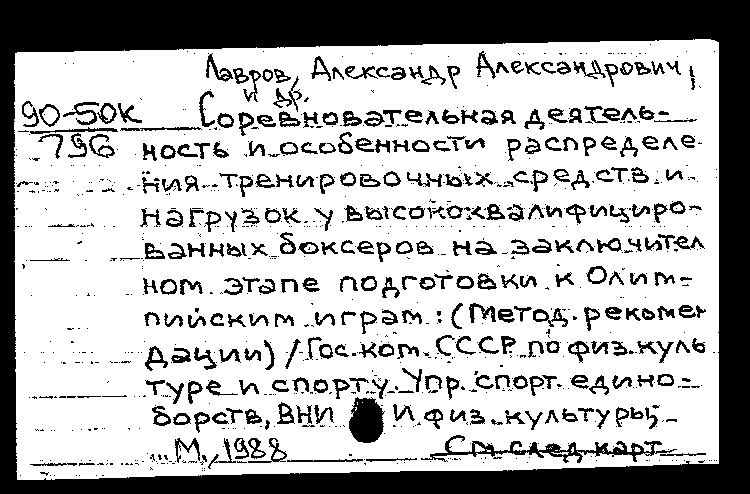 Лавров, Александр Александрович,
и др.
90-50К Соревновательная деятель-
796 ность и особенности распределе
ния тренировочных средств и
нагрузок у высококвалифициро-
ванных боксеров на заключител
ном этапе подготовки к Олим-
пийским играм: (Метод. рекомен
дации) / Гос. ком. СССР по физ. куль
туре и спорту. Упр. спорт. едино-
борств, ВНИ И физ. культуры; -
... М., 1988 См след карт